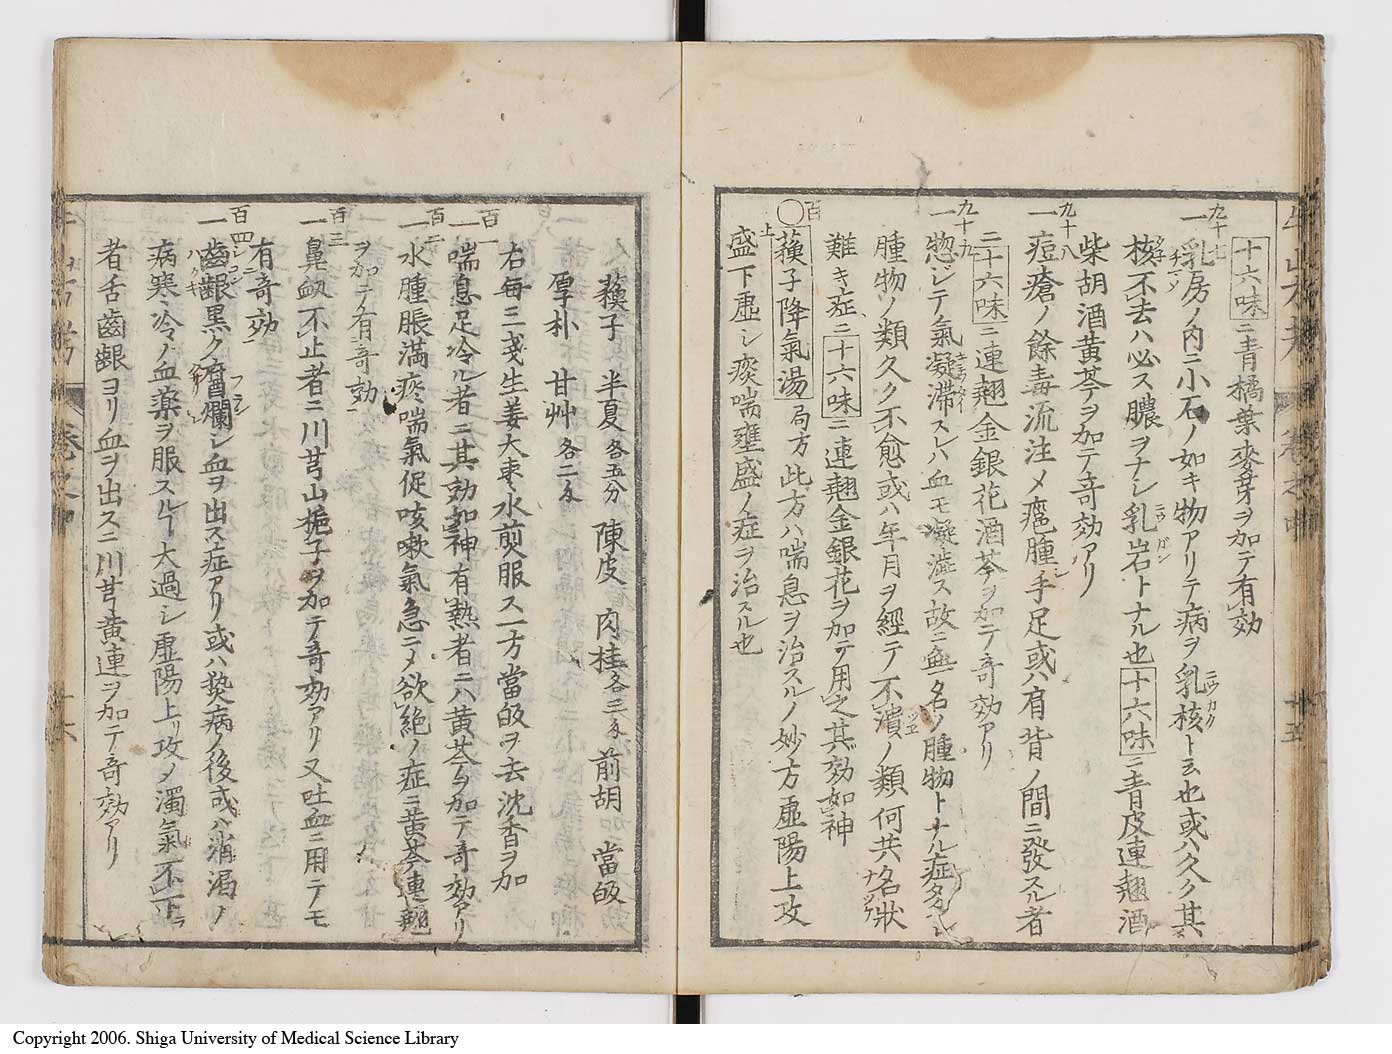 十六味ニ青橘葉麥芽ヲ加テ有効
九十七
一乳房ノ内ニ小石ノ如キ物アリテ病ヲ乳核ト云也或ハ久ク其
核不去ハ必ス膿ヲナシ乳岩トナル也十六味ニ青皮連翹酒
柴胡酒黄芩ヲ加テ奇効アリ
九十八
一痘瘡ノ餘毒流注メ瘟腫手足或ハ肩背ノ間ニ發スル者
二十六味ニ連翹金銀花酒芩ヲ加テ奇効アリ
九十九
一惣ジテ氣凝滞スレハ血モ凝澁ス故ニ無名ノ腫物トナル症多シ
腫物ノ類久ク不愈或ハ年月ヲ經テ不潰ノ類何共名状
難き症ニ二十六味ニ連翹金銀花ヲ加テ用之其効如神
百
〇蘓子降氣湯 局方 此方ハ喘息ヲ治スルノ妙方虚陽上攻
上盛下虚シ痰喘壅盛ノ症ヲ治スル也
蘓子 半夏各五分 陳皮 肉桂各三分 前胡 當皈
厚朴 甘艸各二分
右毎二戔生姜大枣水煎服ス一方當皈ヲ去沈香ヲ加
百一
一喘息足冷ル者ニ其効如神有熱者ニハ黄芩ヲ加テ奇効アリ
百二
一水腫脹満痰喘氣促咳嗽氣急ニメ欲絶ノ症ニ黄芩連翹
ヲ加テ有奇効
百三
一鼻衂不止者ニ川芎山梔子ヲ加テ奇効アリ又吐血ニ用テモ
有奇効
百四
一齒齦黒ク爛シ血ヲ出ス症アリ或ハ熱病ノ後或ハ消渇ノ
病寒冷ノ血薬ヲ服スルー大過シ虚陽上リ攻メ濁氣不下
者舌齒齦ヨリ血ヲ出スニ川芎黄連ヲ加テ奇効アリ
Copyright 2006. Shiga University of Medical Science Library